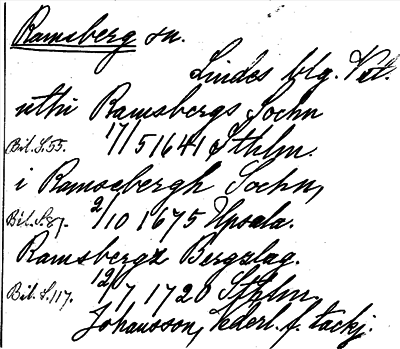 Ramsberg sn.
Lindes blg. Vstl.
uthi Ramsbergs Sochn
Bil. S. 55. 17/5 1641 Sthlm.
i Ramssbergh Sochn,
Bil. S. 87. 2/10 1675 Upsala.
Ramsbergz Bergzlag.
Bil. S. 117. 12/7 1720 Sthlm.
Johansson, Nederl. f. tackj.